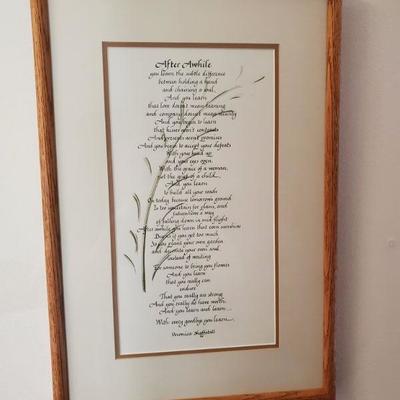 After Awhile
you learn the subtle difference
between holding a hand
and chaining a soul,
And you learn
that love doesn't mean leaning
and company doesn't mean security
And you begin to learn
that kisses aren't contracts
And presents aren't promises
And you begin to accept your defeats
With your head up
and your eyes open,
With the grace of a woman,
not the grief of a child,
And you learn
to build all your roads
On today because tomorrow's ground
Is too uncertain for plans, and
futures have a way
of falling down in mid-flight
After awhile you learn that even sunshine
Burns if you get too much
So you plant your own garden
and decorate your own soul,
Instead of waiting
For someone to bring you flowers
And you learn
that you really can
endure
That you really are strong
And you really do have worth
And you learn and learn...
With every goodbye you learn...
Veronica